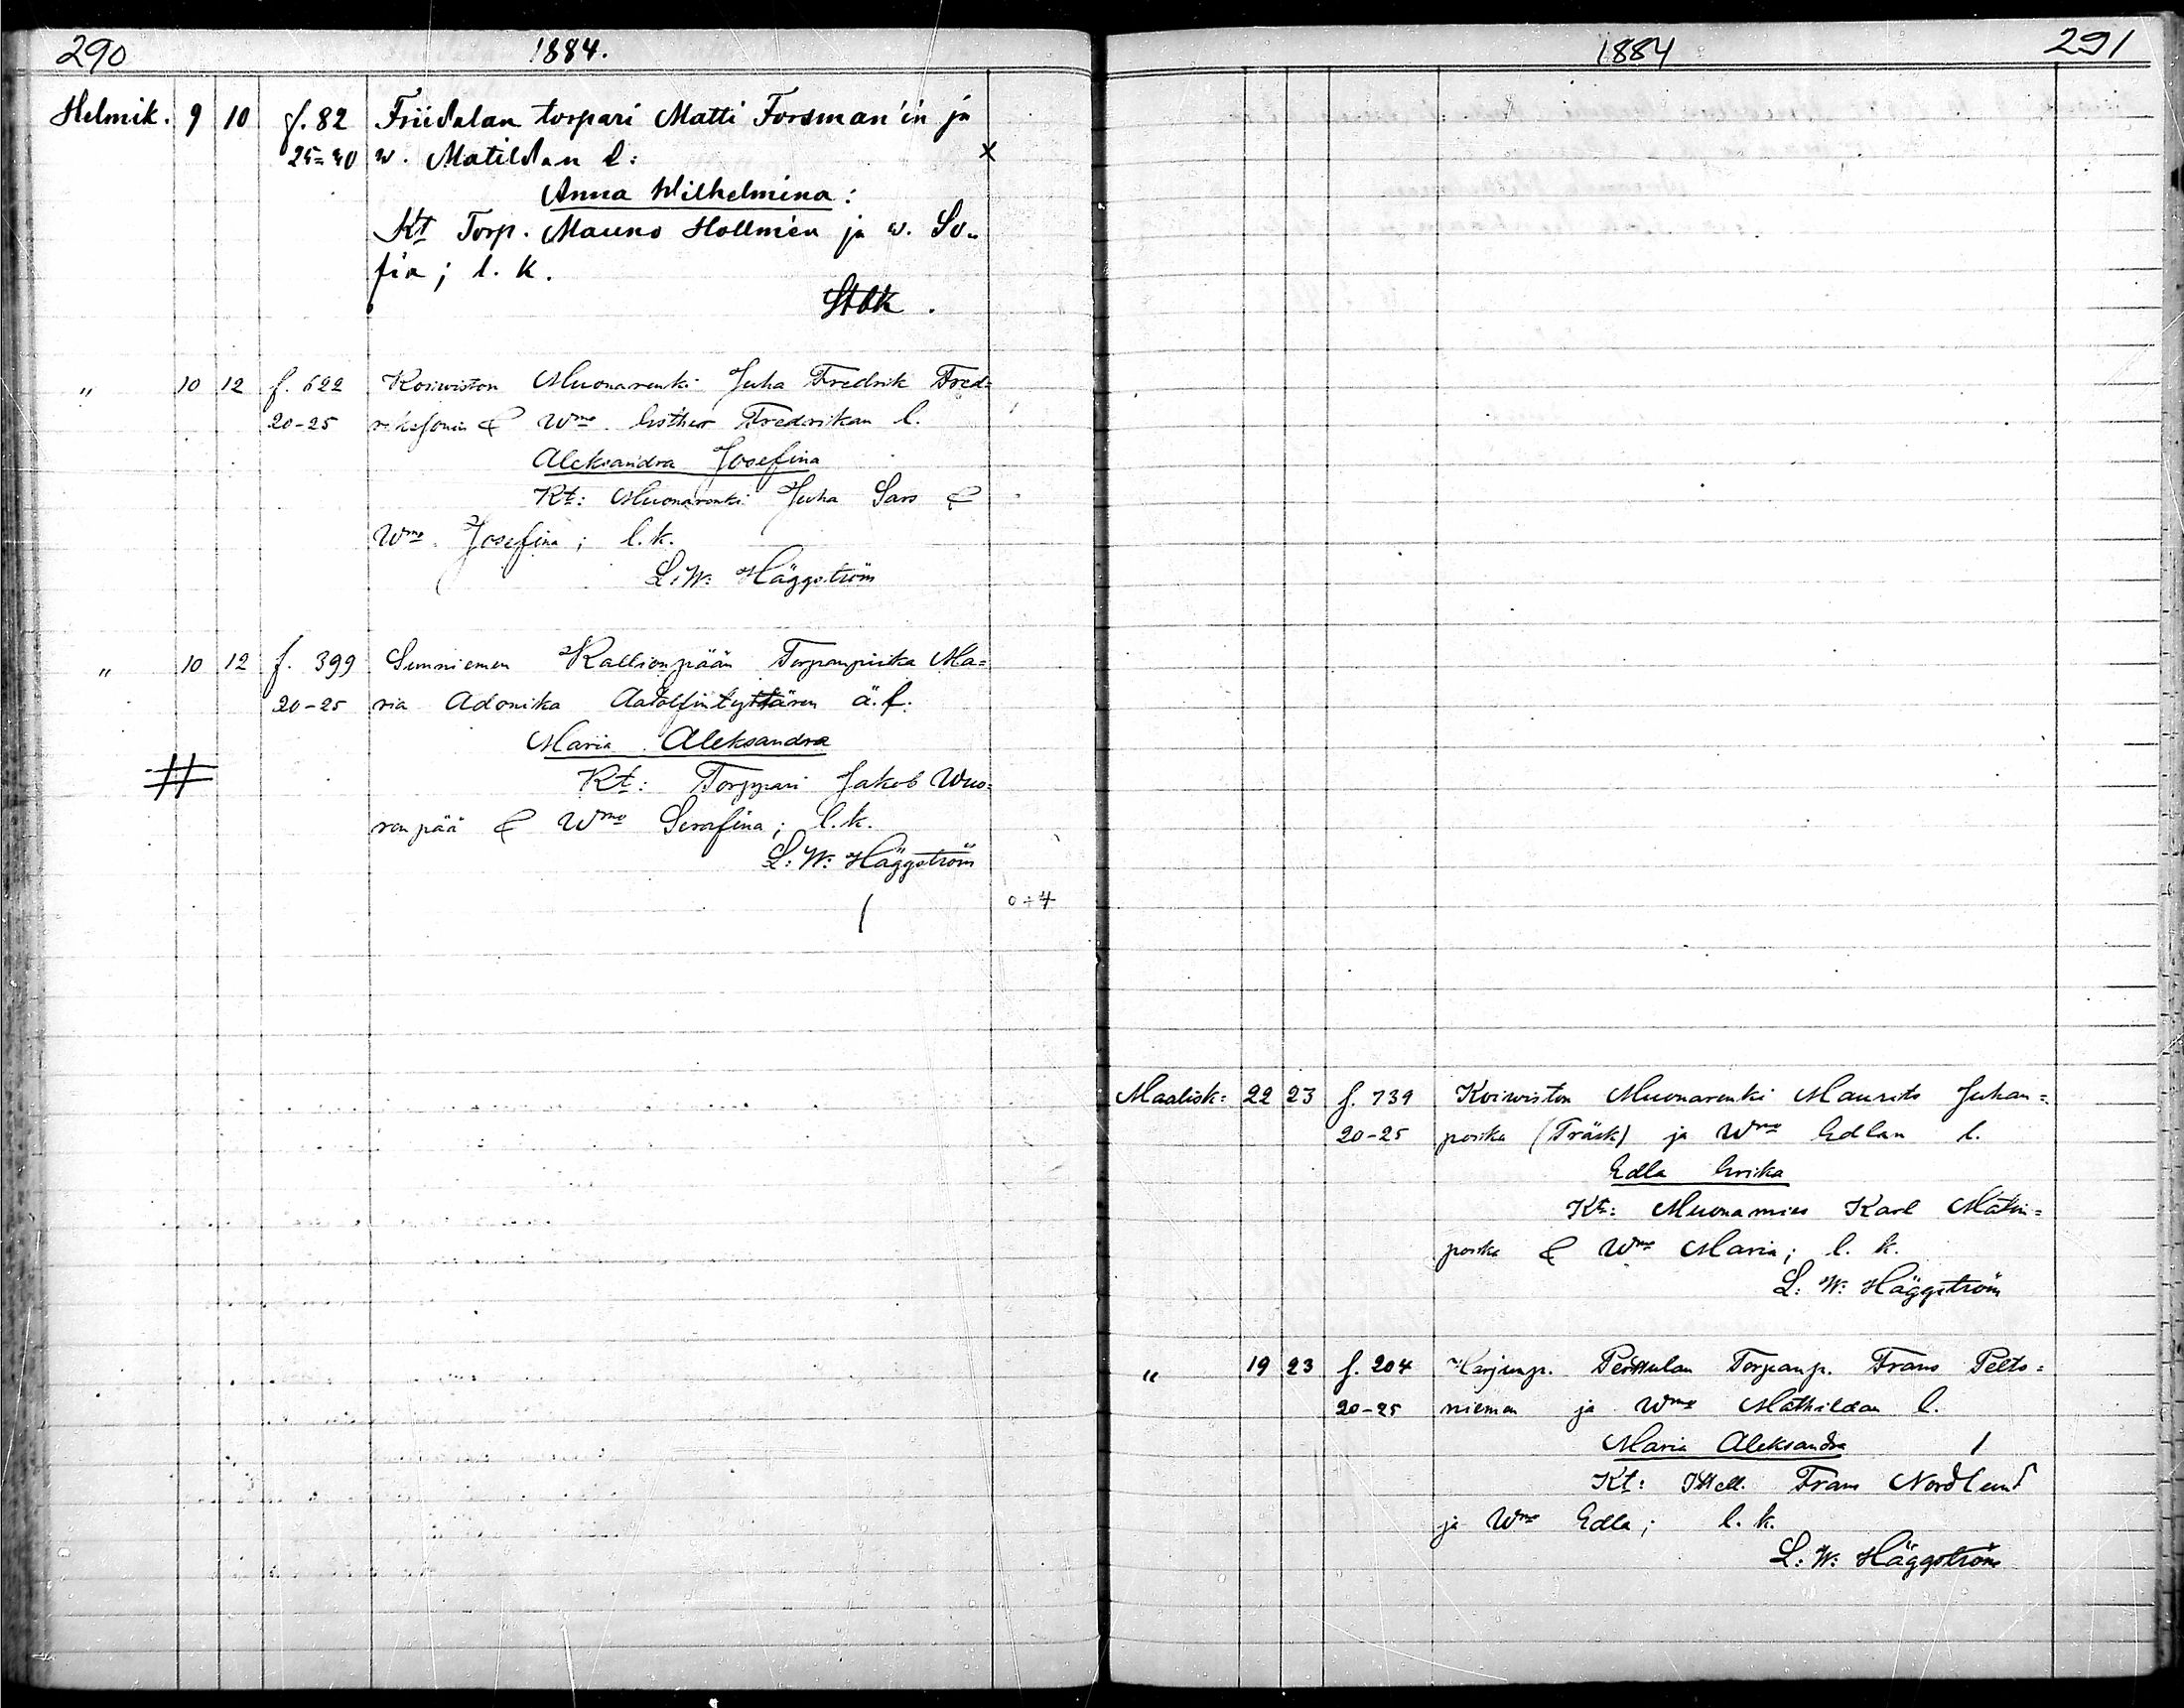 290 1884.
Helmik. 9 10 f. 82 Friidalan torpari Matti Forsman'in ja
25-40 w. Matildan l: x
Anna Wilhelmina:
Kt Torp. Mauno Hollmén ja w. So-
fia; l. k.
" 10 12 f. 622 Koiwiston Muonarenki Juha Fredrik Fred-
20-25 & Wmo Esther Fredrikan l.
Aleksandra Josefina
Kt: Muonarenki Juha Sars &
Wmo. Josefina; l. k.
L. W. Häggström
" 10 12 f. 399 Kallionpään Torpanpiika Ma=
20-25 ria Adonika Aatolfintyttären ä. l.
Maria Aleksandra
# Kt: Torppari Jakob Wuo=
renpää & Wmo Serafina; l. k.
L: W: Häggström
1884 291
Maalisk: 22 23 f. 739 Koiwiston Muonarenki Maurits Juhan=
20-25 poika (Träsk) ja Wmo Edlan l.
Edla Erika
Kt: Muonamies Karl Matin=
poika & Wmo Maria; l. k.
L: W: Häggström
" 19 23 f. 204 Harjunp. Torpanp. Frans Pelto=
20-25 niemen ja Wmo Mathildan l.
Maria Aleksandra 1
Kt: Itsell. Frans Nordlund
ja Wmo Edla; l. k.
L: W: Häggström